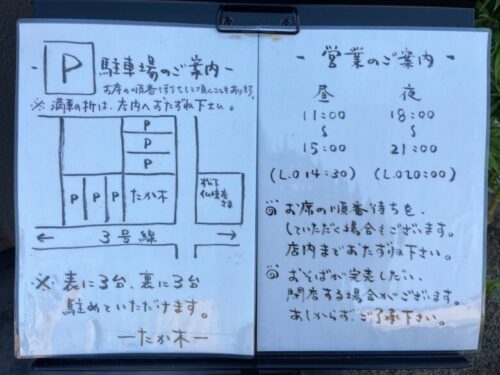 P
- 駐車場のご案内 -
お席の順番待ちをして頂くこともあります。
※ 満車の折は、店内へおたずね下さい。
P
P
P
P P P
たか木
松下
仏壇店
さま
← 3号線 →
※ 表に3台、裏に3台
駐めていただけます。
—たか木—
- 営業のご案内 -
昼 夜
11:00 18:00
〜 〜
15:00 21:00
(L.O 14:30) (L.O 20:00)
◎ お席の順番待ちを、
していただく場合もございます。
店内までおたずね下さい。
◎ おそばが完売しだい、
閉店する場合がございます。
あしからず、ご了承下さい。